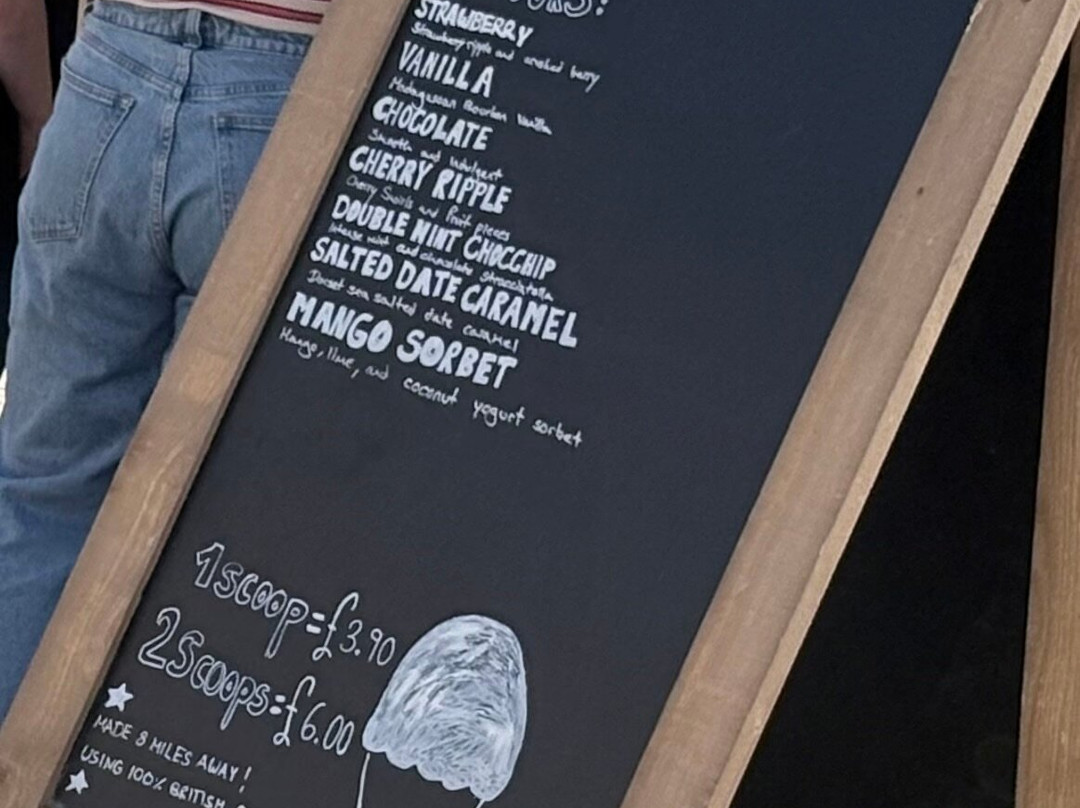 STRAWBERRY
Strawberry ripple and crushed berry
VANILLA
Madagascan Bourbon Vanilla
CHOCOLATE
Smooth and indulgent
CHERRY RIPPLE
Cherry Swirls and fruit pieces
DOUBLE MINT CHOCCHIP
Intense mint and chocolate Stracciatella
SALTED DATE CARAMEL
Dorset sea salted date caramel
MANGO SORBET
Mango, lime, and coconut yogurt sorbet
1 scoop = £3.90
2 Scoops = £6.00
MADE 8 MILES AWAY!
USING 100% BRITISH